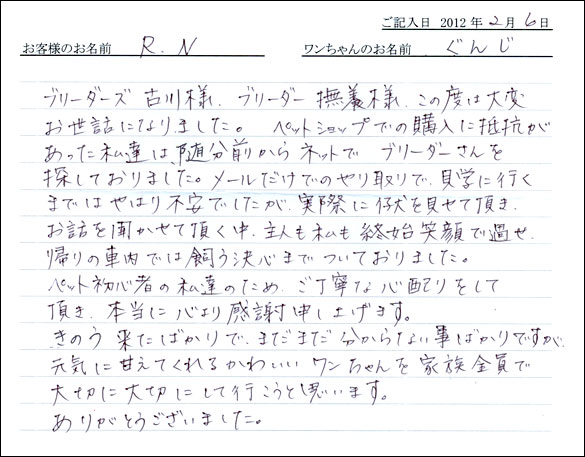 ご記入日 2012年2月6日
お客様のお名前 R.N ワンちゃんのお名前 ぐんじ
ブリーダーズ 古川様、ブリーダー 撫養様、この度は大変
お世話になりました。 ペットショップでの購入に抵抗が
あった私達は、随分前から ネットで ブリーダーさんを
探しておりました。メールだけでのやり取りで、見学に行く
までは やはり不安でしたが、実際に仔犬を見せて頂き、
お話を聞かせて頂く中、主人も私も 終始笑顔で過せ、
帰りの車内では飼う決心までついておりました。
ペット初心者の私達のため、ご丁寧な心配りをして
頂き、本当に心より感謝申し上げます。
きのう 来たばかりで、まだまだ分からない事ばかりですが、
元気に甘えてくれるかわいい ワンちゃんを家族全員で
大切に大切にして行こうと思います。
ありがとうございました。